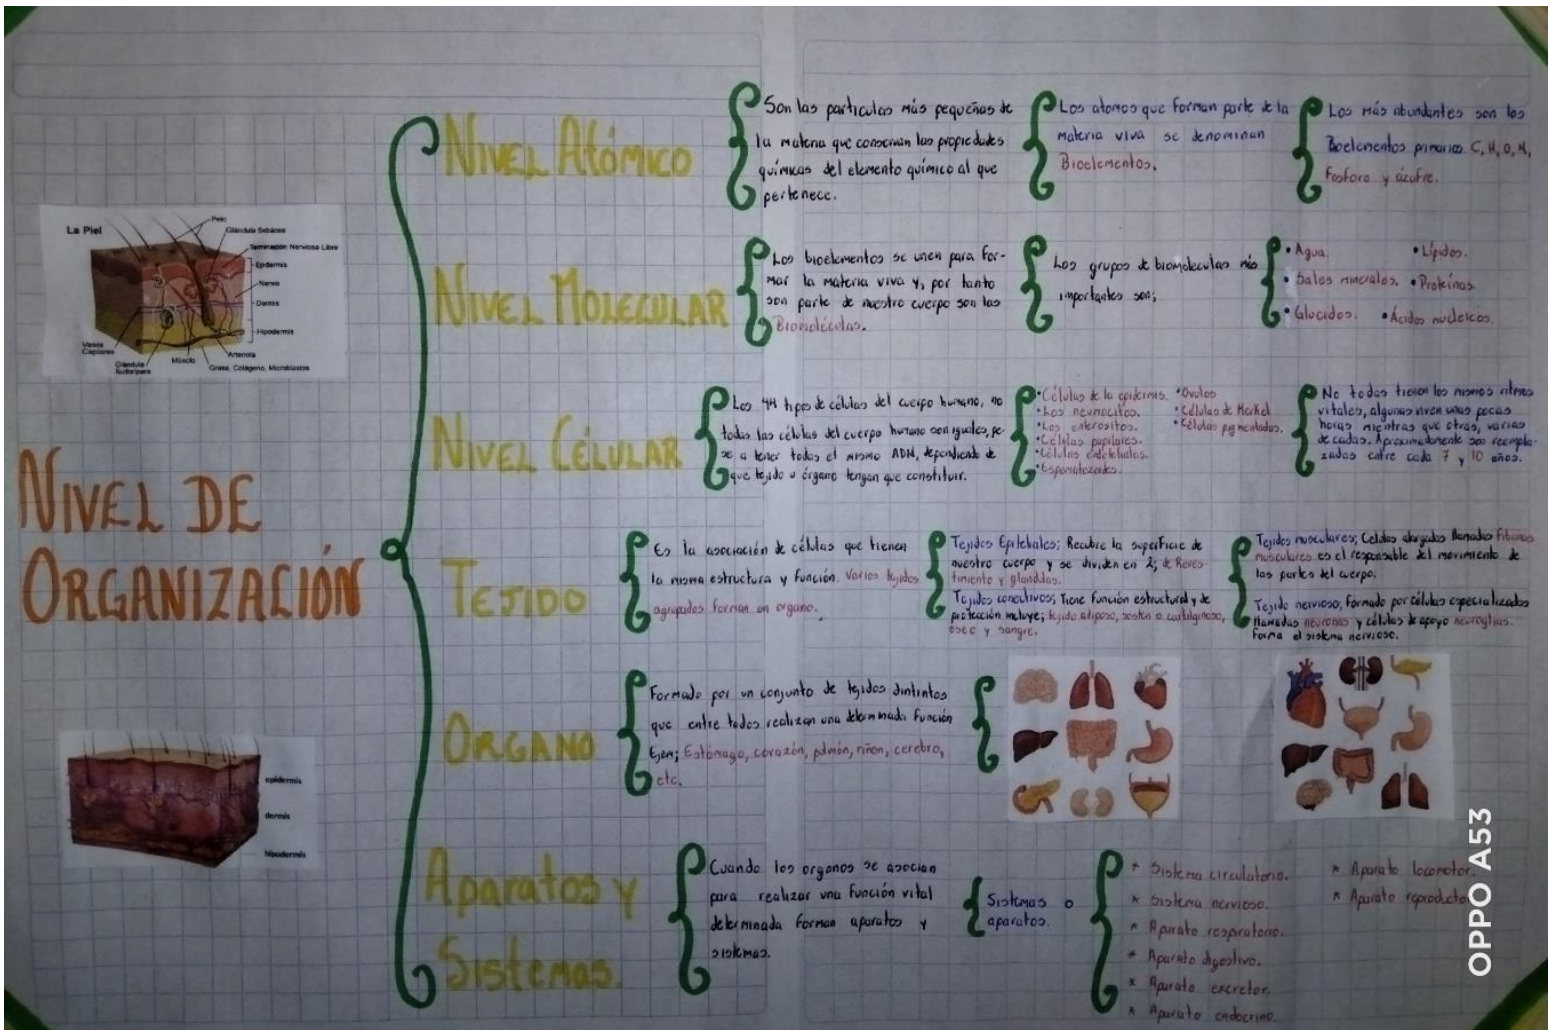 NIVEL DE
ORGANIZACIÓN
La Piel
Pelo
Glándula Sebácea
Terminación Nerviosa Libre
Epidermis
Nervio
Dermis
Hipodermis
Arteriola
Grasa, Colágeno, Fibroblastos
Músculo
Glándula
Sudorípara
Vasos
Capilares
epidermis
dermis
hipodermis
NIVEL ATÓMICO
Son las particulas más pequeñas de
la materia que conservan las propiedades
químicas del elemento químico al que
pertenece.
Los atomos que forman parte de la
materia viva se denominan
Bioelementos.
Los más abundantes son los
Bioelementos primarios. C, H, O, N,
Fosforo y ázufre.
NIVEL MOLECULAR
Los bioelementos se unen para for-
mar la materia viva y, por tanto
son parte de nuestro cuerpo son las
Biomoléculas.
Los grupos de biomoleculas más
importantes son;
• Agua.
• Sales minerales.
• Glucidos.
• Lípidos.
• Proteínas
• Ácidos nucleicos.
NIVEL CÉLULAR
Los 44 tipos de células del cuerpo humano, no
todas las células del cuerpo humano son iguales, pe-
se a tener todas el mismo ADN, dependiendo de
que tejido u órgano tengan que constituir.
• Células de la epidermis.
• Los neumocitos.
• Los enterositos.
• Células papilares.
• Células endoteliales.
• Espermatozoides.
• Ovulos
• Células de Merkel
• Células pigmentadas.
No todas tienen los mismos ritmos
vitales, algunas viven unas pocas
horas mientras que otras, varias
decadas. Aproximadamente son reempla-
zadas entre cada 7 y 10 años.
TEJIDO
Es la asociación de células que tienen
la misma estructura y función. Varios tejidos
agrupados forman un organo.
Tejidos Epiteliales; Recubre la superficie de
nuestro cuerpo y se dividen en 2; de Reves-
timiento y glanddas.
Tejidos conectivos; Tiene función estructural y de
protección incluye; tejido adiposo, sosten o cartilginoso,
oseo y sangre.
Tejidos musculares; Celulas alargadas llamadas Fibras
musculares es el responsable del movimiento de
las partes del cuerpo.
Tejido nervioso; Formado por células especializadas
llamadas neuronas y células de apoyo neuroglias.
Forma el sistema nervioso.
ORGANO
Formado por un conjunto de tejidos dintintos
que entre todos realizan una determinada función
Ejem; Estómago, corazón, pulmón, riñon, cerebro,
etc.
Aparatos y
Sistemas.
Cuando los organos se asocian
para realizar una función vital
determinada forman aparatos y
sistemas.
Sistemas o
aparatos.
* Sistema circulatorio.
* Sistema nervioso.
* Aparato respiratorio.
* Aparato digestivo.
* Aparato excretor.
* Aparato endocrino.
* Aparato locomotor.
* Aparato reproductor
OPPO A53